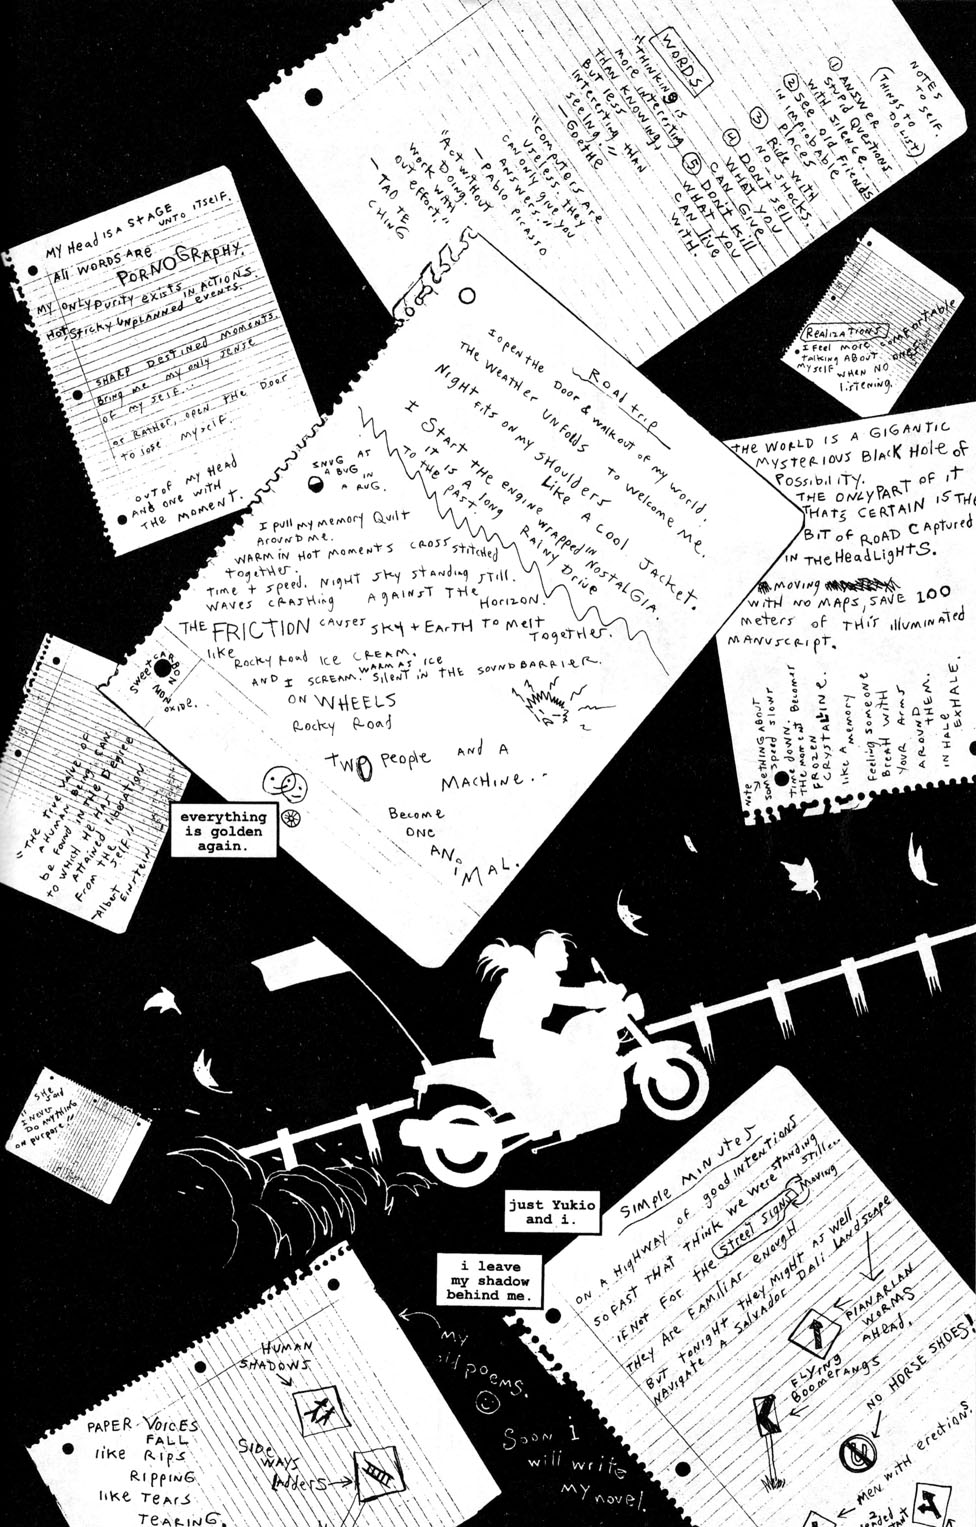 NOTES
TO SELF.
(THINGS TO
DO LIST)
① ANSWER
STUPID QUESTIONS
WITH SILENCE.
② SEE OLD FRIENDS
IN IMPROBABLE
PLACES
③ Ride WITH
NO SHOCKS.
④ DON'T SELL
WHAT YOU
CAN GIVE
⑤ DON'T KILL
WHAT YOU
CAN LIVE
WITH.
WORDS
"THINKING IS
more INTERESTING
THAN KNOWING.
BUT less
INTERESTING THAN
seeing."
— GOETHE
"COMPUTERS ARE
USELESS. THEY
CAN ONLY GIVE YOU
ANSWERS."
— PABLO PICASSO
"Act WITHOUT
DOING.
WORK WITH
OUT effort."
— TAO TE
CHING
MY Head IS A STAGE
UNTO ITSELF.
All WORDS ARE
PORNOGRAPHY.
MY ONLY PURITY EXISTS IN ACTIONS
Hot, Sticky UNPLANNED EVENTS.
SHARP DESTINED MOMENTS.
Bring me MY ONLY SENSE
OF MY SELF...
or RATHER, OPEN THE DOOR
TO LOSE MYSELF.
OUT OF MY HEAD
AND ONE WITH
THE MOMENT.
REALIZATIONS
I Feel MORE COMFORTABLE
TALKING ABOUT
MYSELF WHEN NO
ONE'S
LISTENING.
Road trip
I OPEN THE DOOR & WALK OUT OF MY WORLD.
THE WEATHER UNFOLDS TO WELCOME ME.
NIGHT FITS ON MY SHOULDERS
LIKE A COOL JACKET.
I START THE ENGINE WRAPPED IN NOSTALGIA
IT IS A LONG RAINY DRIVE
TO THE PAST.
SNUG AS
A BUG IN
A RUG.
I pull MY MEMORY QUILT
AROUND ME.
WARM IN HOT MOMENTS CROSS stitched
together.
TIME + SPEED. NIGHT SKY STANDING STILL.
WAVES CRASHING AGAINST THE
HORIZON.
THE FRICTION CAUSES SKY + EARTH TO MELT
TOGETHER.
like
Rocky Road ICE CREAM.
AND I SCREAM. WARM AS ICE
SILENT IN THE SOUND BARRIER.
ON WHEELS
Rocky Road
TWO People AND A
MACHINE..
Become
ONE
ANIMAL.
sweet CARBON
MON
OXIDE.
THE WORLD IS A GIGANTIC
MYSTERIOUS BLACK HOLE OF
POSSIBILITY.
THE ONLY PART OF IT
THATS CERTAIN IS THE
BIT OF ROAD CAPTURED
IN THE HEADLIGHTS.
MOVING
WITH NO MAPS, SAVE 100
meters OF THIS ILLUMINATED
MANUSCRIPT.
Note
SOMETHING ABOUT
SPEED SLOWS
TIME DOWN.
THE MOMENT BECOMES
FROZEN
CRYSTALINE.
LIKE A MEMORY
Feeling SOMEONE
Breath WITH
YOUR ARMS
AROUND
THEM.
INHALE
EXHALE.
"THE TRUE VALUE OF
A HUMAN BEING CAN
BE FOUND IN THE Degree
TO WHICH HE HAS
ATTAINED LIBERATION
FROM THE
SELF"
—Albert
EINSTEIN
everything
is golden
again.
SHE
said
"I Never
Do ANYTHING
ON purpose."
just Yukio
and i.
i leave
my shadow
behind me.
SIMPLE MINUTES
ON A HIGHWAY OF good INTENTIONS
SO FAST THAT THINK WE WERE STANDING
STILL...
IF NOT FOR THE Street Signs MOVING
THEY ARE FAMILIAR ENOUGH
BUT TONIGHT THEY MIGHT AS WELL
NAVIGATE A SALVADOR DALI LANDSCAPE
PLANARIAN
WORMS
AHEAD.
FLYING
BOOMERANGS
NO HORSE SHOES!
MEN WITH ERECTIONS.
my
old poems.
Soon i
will write
my novel.
HUMAN
SHADOWS
SIDE
WAYS
ladders
PAPER VOICES
FALL
like Rips
RIPPING
like TEARS
TEARING.